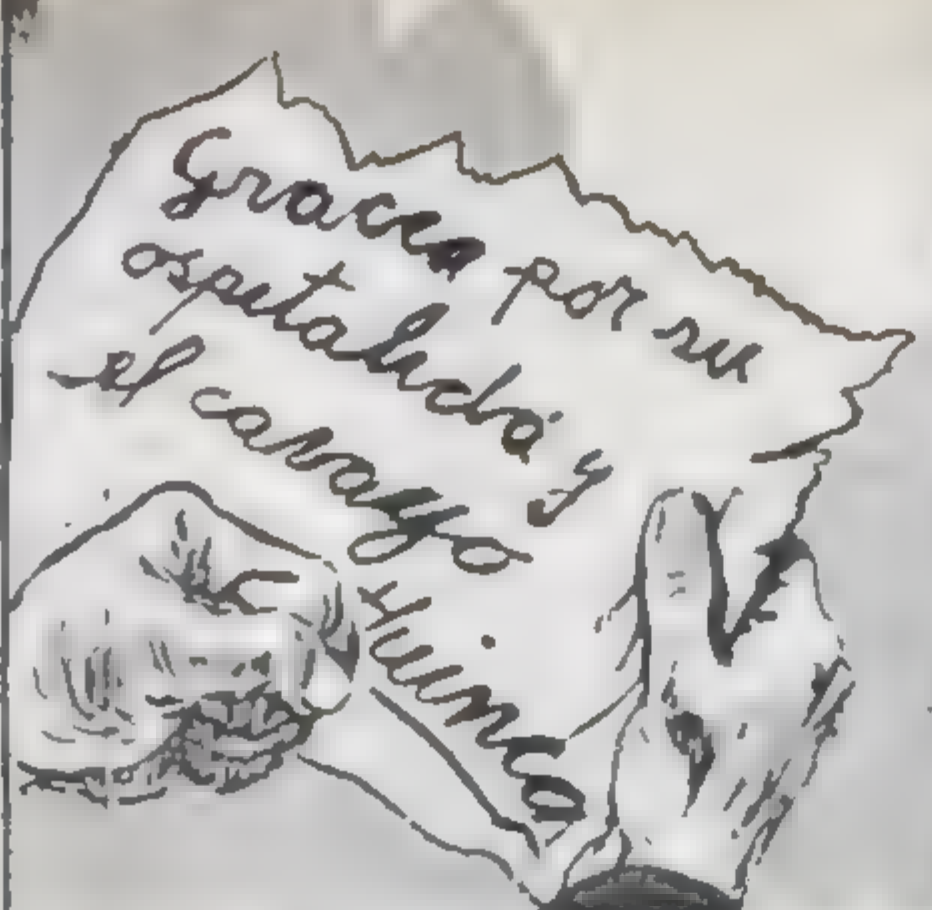 Gracia por su
ospetalidá y
el cavayo
Huinca